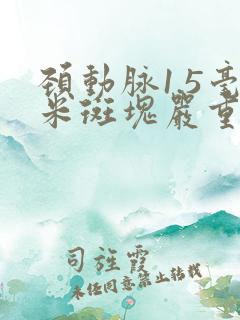 頚動脉15毫
米斑塊嚴重
司旌霞
未经同意禁止转载